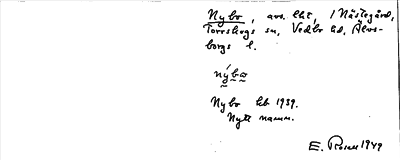 Nybo, avs. lht, 1 Nästegård,
Toresbogs sn, Vedbo hd, Älvs-
borgs l.
nýbω
Nybo hb 1939.
Nytt namn.
E. Rosell 1949